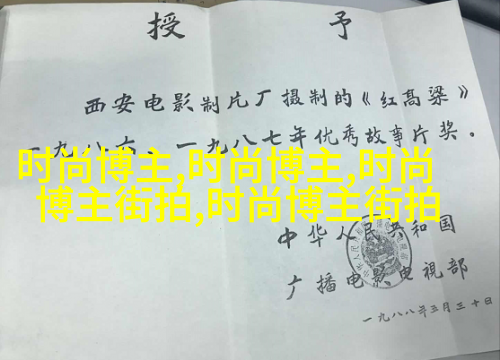 授予
西安电影制片厂摄制的《红高粱》
一九八六、一九八七年优秀故事片奖。
时尚博主,时尚博主,时尚
博主街拍,时尚博主街拍
中华人民共和国
广播电影电视部
一九八八年三月三十日